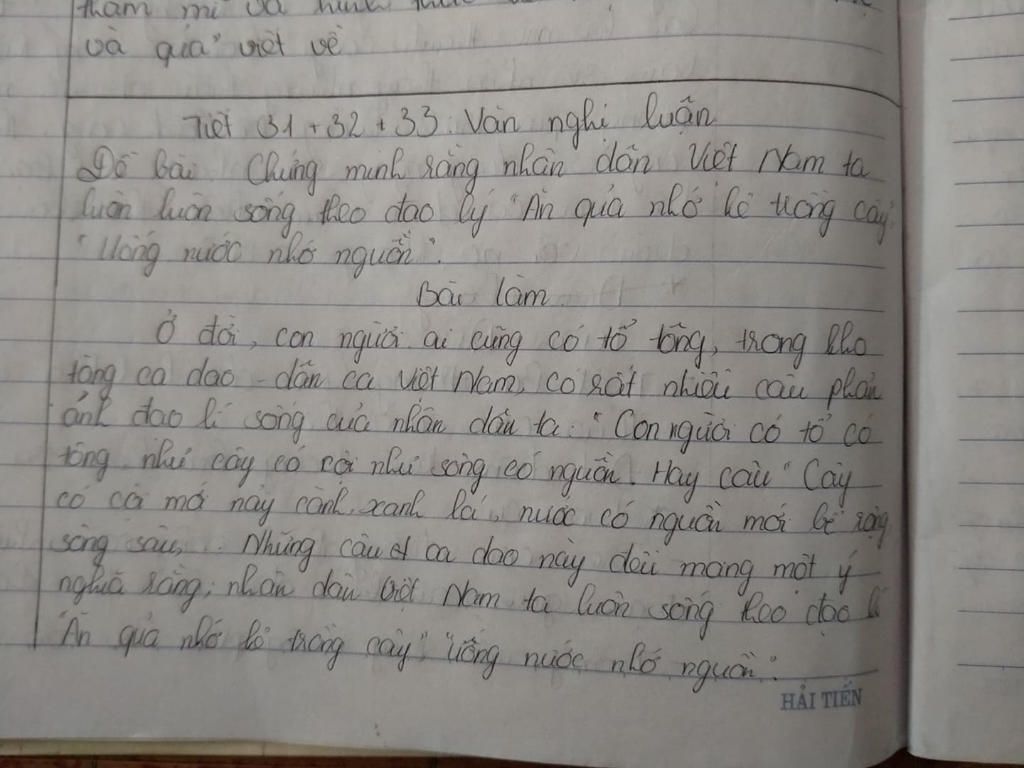 thẩm mĩ và hình thức
và giá" viết về
Tiết 31 + 32 + 33: Văn nghị luận
Đề bài: Chứng minh rằng nhân dân Việt Nam ta
luôn luôn sống theo đạo lý "Ăn quả nhớ kẻ trồng cây"
"Uống nước nhớ nguồn".
Bài làm
Ở đời, con người ai cũng có tổ tông, trong kho
tàng ca dao - dân ca Việt Nam, có rất nhiều câu phản
ánh đạo lí sống của nhân dân ta: "Con người có tổ có
tông như cây có cội như sông có nguồn. Hay câu "Cây
có cội mới nảy cành xanh lá, nước có nguồn mới bể rộng
sông sâu,.. Những câu ca dao này đều mang một ý
nghĩa rằng; nhân dân Việt Nam ta luôn sống theo đạo lí
"Ăn quả nhớ kẻ trồng cây", "Uống nước nhớ nguồn".
HẢI TIẾN